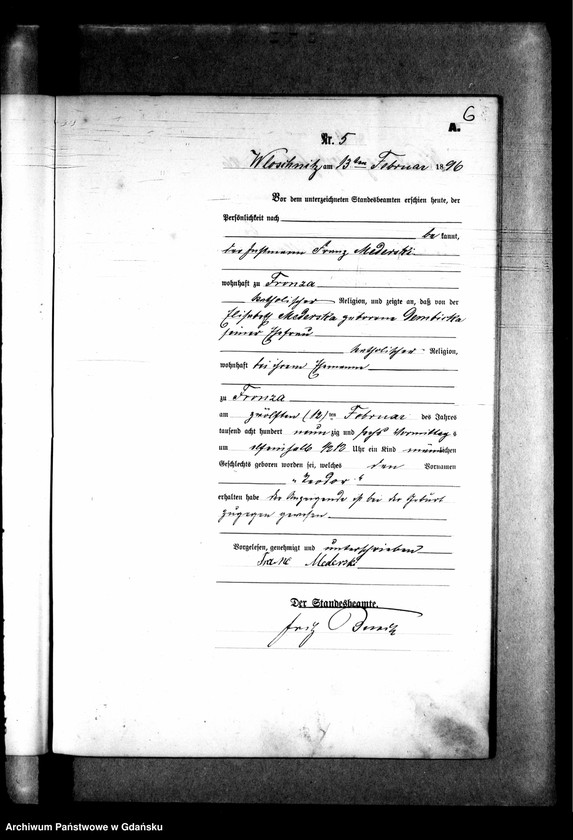 6
A.
Nr. 5
Wloschnitz am 13ten Februar 1896
Vor dem unterzeichneten Standesbeamten erschien heute, der
Persönlichkeit nach
be kannt,
der Franz Mederski
wohnhaft zu Fronza
katholischer Religion, und zeigte an, daß von der
Elisabeth Mederska geborene Dembicka
seiner Ehefrau
katholischer Religion,
wohnhaft bei ihrem Ehemanne
zu Fronza
am zwölften (12)ten Februar des Jahres
tausend acht hundert neun zig und sechs Vormittag s
um Uhr ein Kind männlichen
Geschlechts geboren worden sei, welches den Vornamen
"Teodor"
erhalten habe der Anzeigende ist bei der Geburt
zugegen gewesen
Vorgelesen, genehmigt und unterschrieben
Mederski
Der Standesbeamte.
Fritz
Archiwum Państwowe w Gdańsku